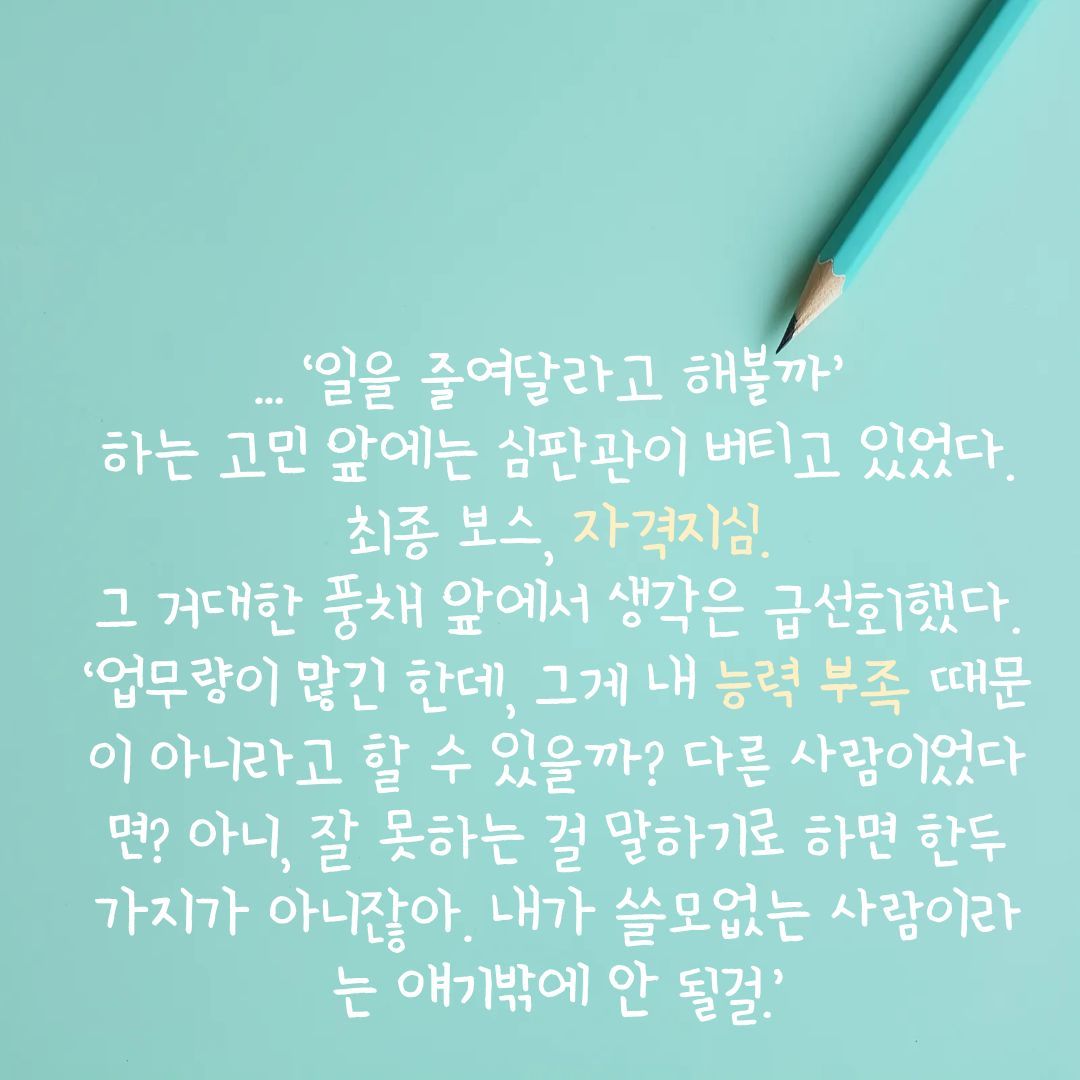 ... ‘일을 줄여달라고 해볼까’
하는 고민 앞에는 심판관이 버티고 있었다.
최종 보스, 자격지심.
그 거대한 풍채 앞에서 생각은 급선회했다.
‘업무량이 많긴 한데, 그게 내 능력 부족 때문
이 아니라고 할 수 있을까? 다른 사람이었다
면? 아니, 잘 못하는 걸 말하기로 하면 한두
가지가 아니잖아. 내가 쓸모없는 사람이라
는 얘기밖에 안 될걸.’